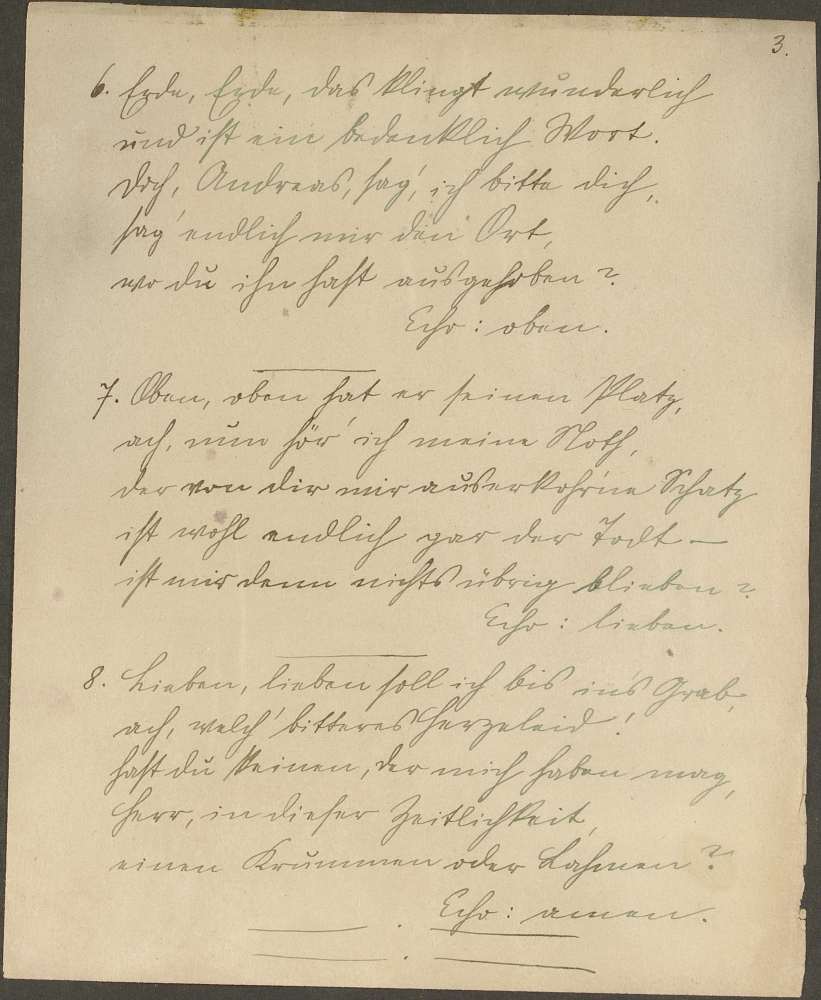 3.
6. Erde, Erde, das klingt wunderlich
und ist ein bedenklich Wort.
Doch, Andreas, sag', ich bitte dich,
sag' endlich mir den Ort,
wo du ihn hast ausgehoben?
Echo: oben.
7. Oben, oben hat er seinen Platz,
ach, nun hör' ich meine Noth,
der von dir mir auserkohr'ne Schatz
ist wohl endlich gar der Todt —
ist mir denn nichts übrig blieben?
Echo: lieben.
8. Lieben, lieben soll ich bis in's Grab,
ach, welch' bitteres Herzeleid!
hast du keinen, der mich haben mag,
Herr, in dieser Zeitlichkeit,
einen Krummen oder Lahmen?
Echo: amen.